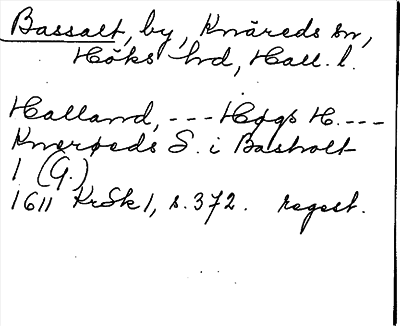 Bassalt, by, Knäreds sn,
Höks hd, Hall. l.
Halland, --- Høgs H. ---
Knerøeds S. i Basholt
1 (G.)
1611 KrSk 1, s. 372. regest.